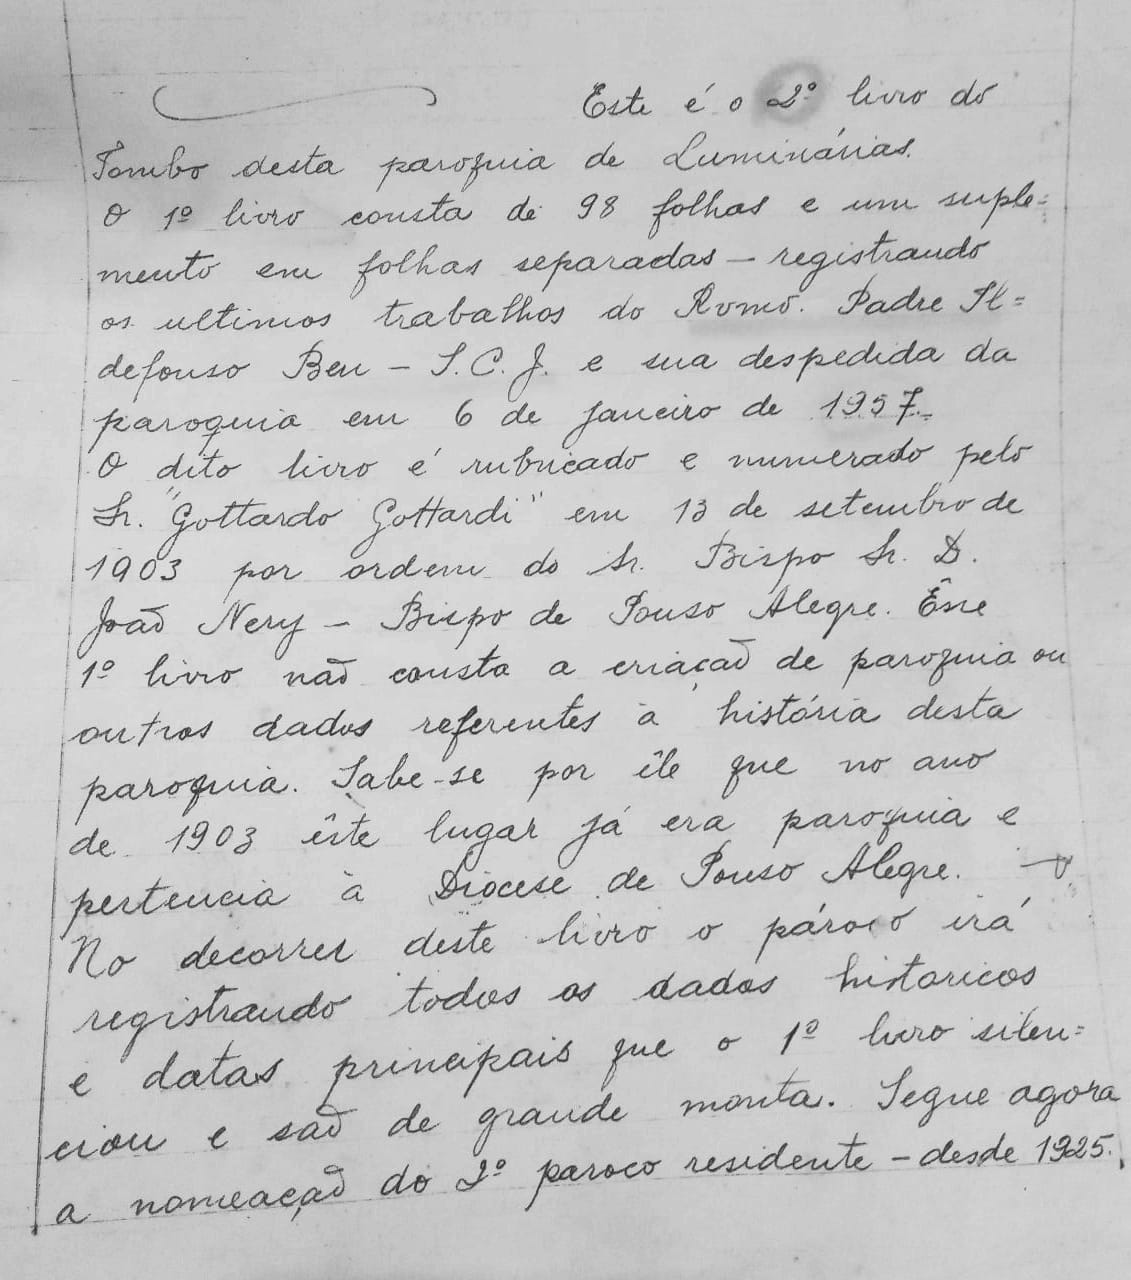 Este é o 2º livro do
Tombo desta paroquia de Luminárias.
O 1º livro consta de 98 folhas e um suple=
mento em folhas separadas – registrando
os ultimos trabalhos do Rvmo. Padre Il=
defonso Beu – S.C.J. e sua despedida da
paroquia em 6 de janeiro de 1957.
O dito livro é rubricado e numerado pelo
Sr. "Gottardo Gottardi" em 13 de setembro de
1903 por ordem do Sr. Bispo Sr. D.
João Nery – Bispo de Pouso Alegre. Êsse
1º livro não consta a criaçaõ de paroquia ou
outros dados referentes à história desta
paroquia. Sabe-se por êle que no ano
de 1903 êste lugar já era paroquia e
pertencia à Diocese de Pouso Alegre.
No decorrer deste livro o pároco irá
registrando todos os dados historicos
e datas principais que o 1º livro silen=
ciou e saõ de grande monta. Segue agora
a nomeaçaõ do 2º paroco residente – desde 1925.